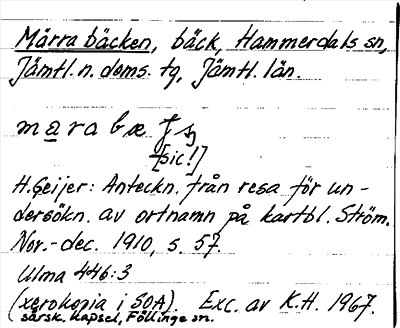 Mårrabäcken, bäck, Hammerdals sn,
Jämtl. n. doms. tg, Jämtl. län.
[sic!]
H. Geijer: Anteckn. från resa för un-
dersökn. av ortnamn på kartbl. Ström.
Nov.-dec. 1910, s. 57.
Ulma 446:3
(xerokopia i SOA). Exc. av K.H. 1967.
särsk. kapsel, Föllinge sn.